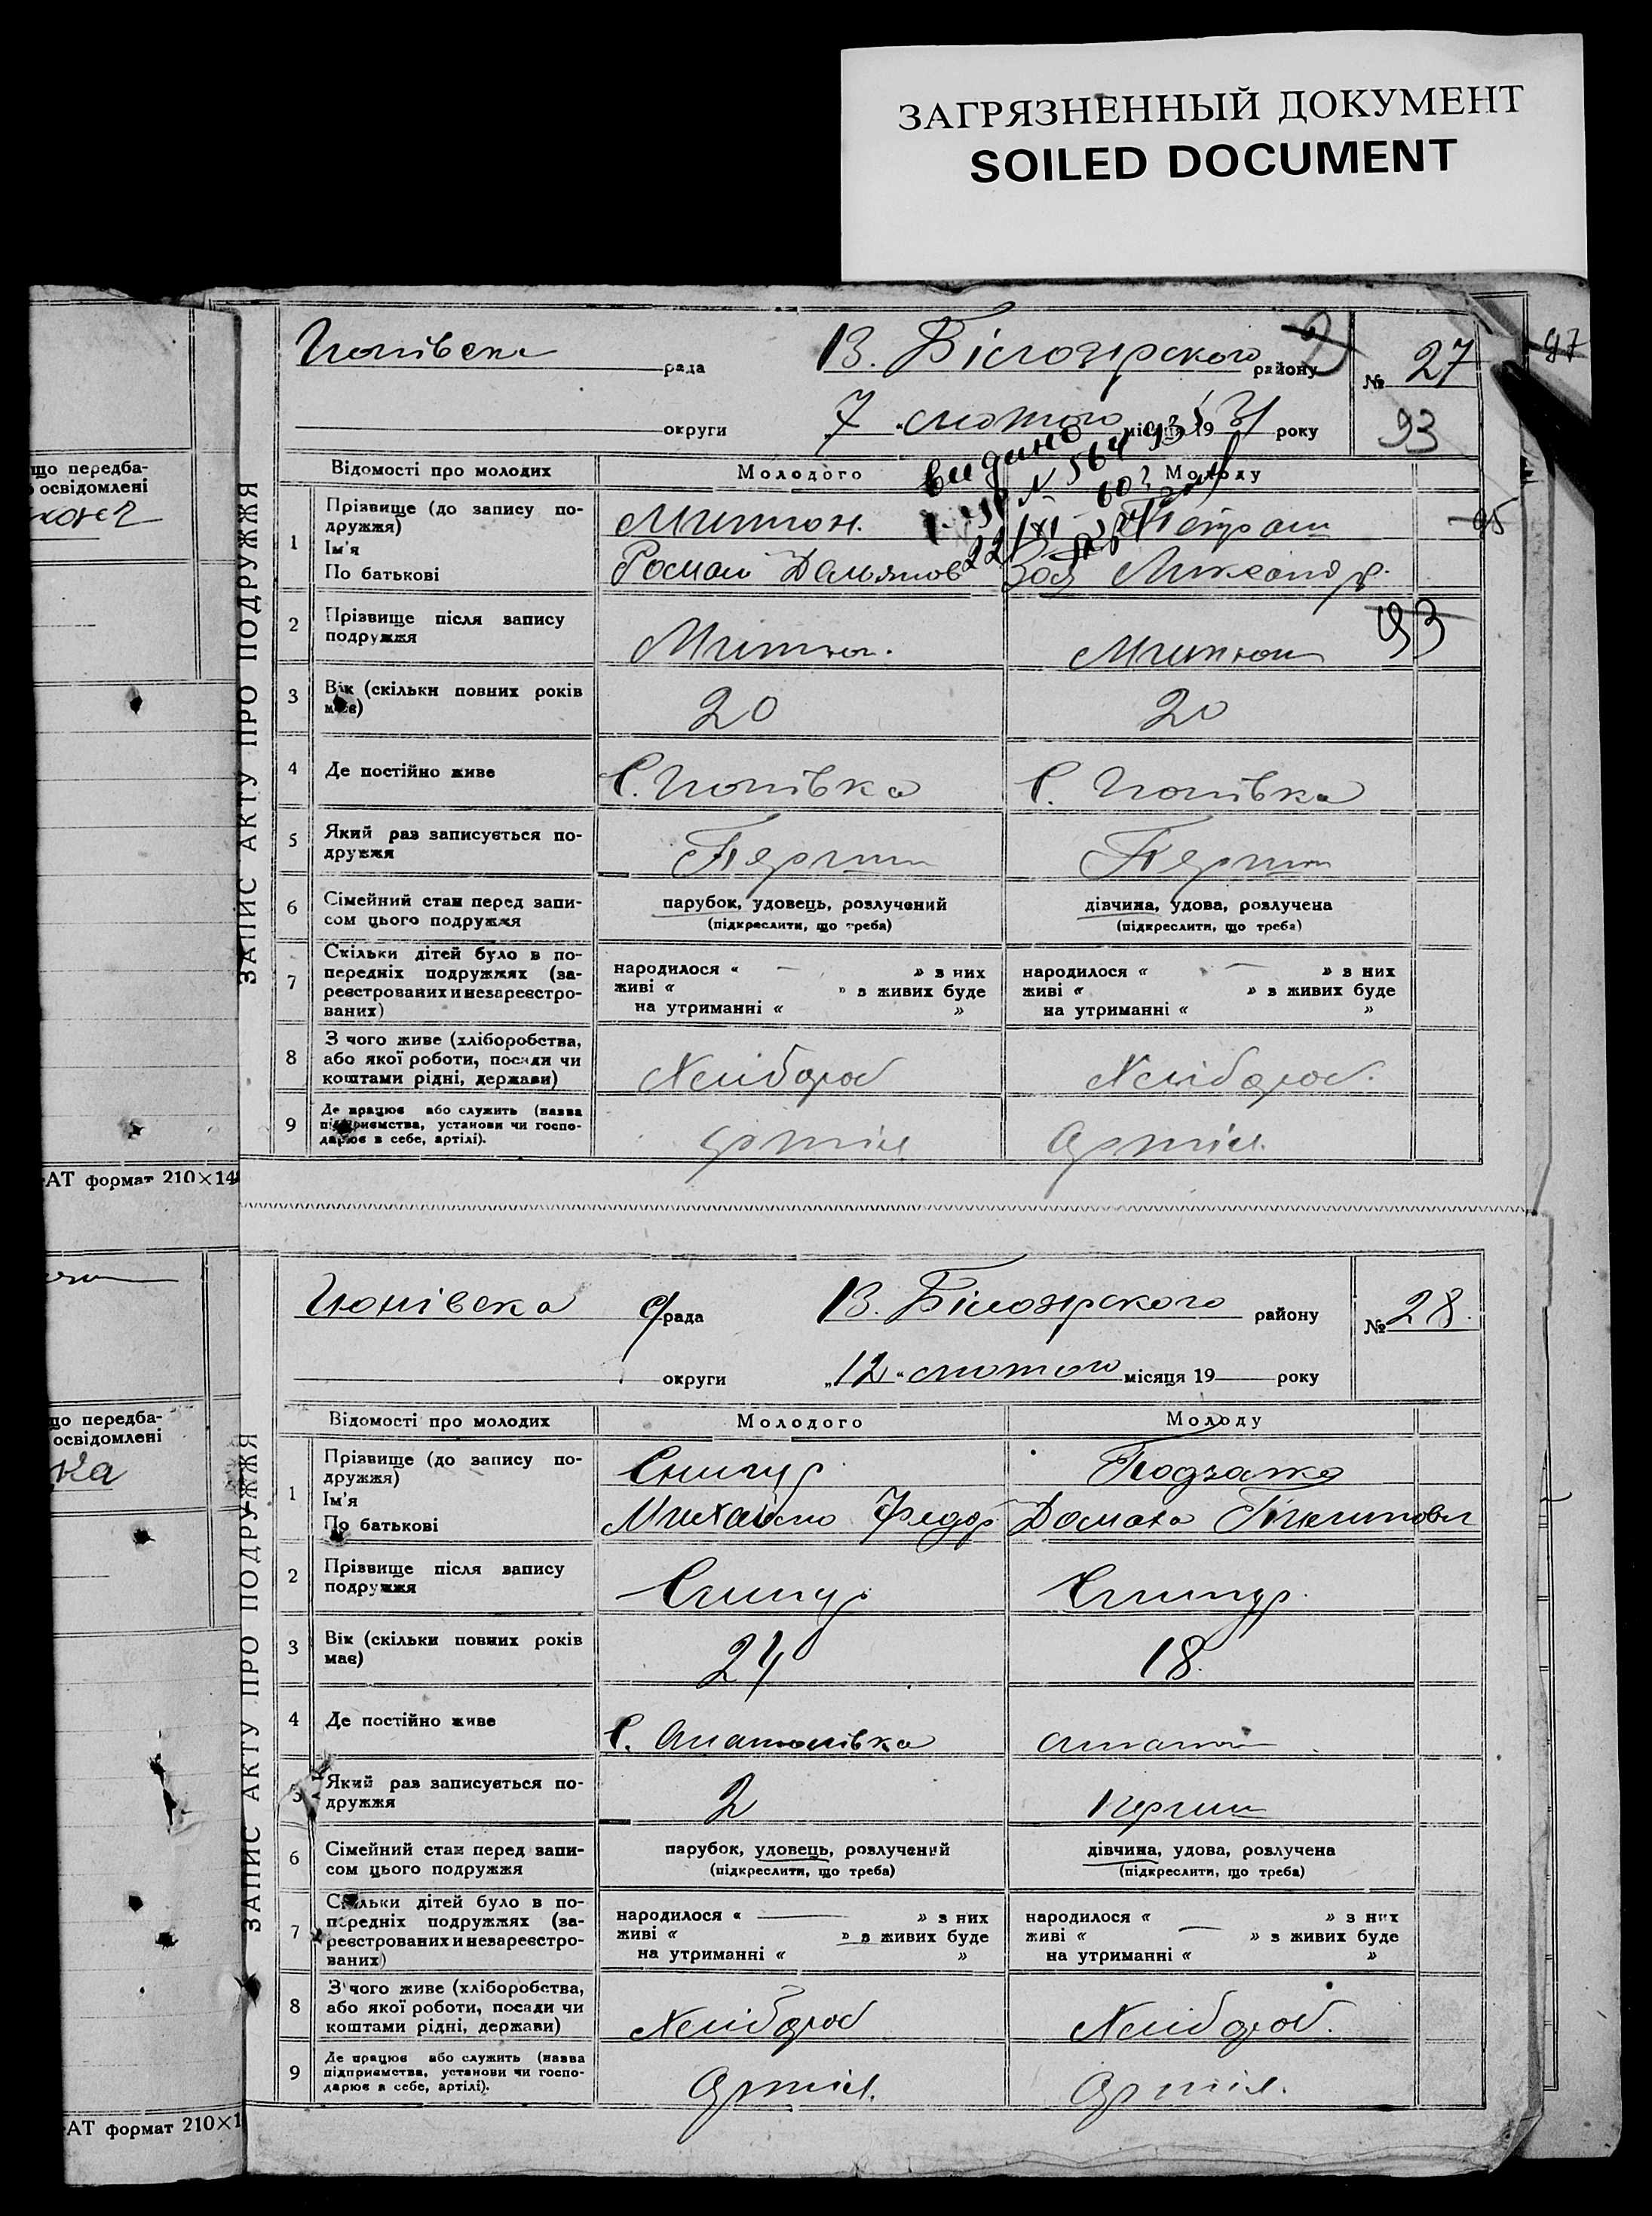 ЗАГРЯЗНЕННЫЙ ДОКУМЕНТ
SOILED DOCUMENT
що передба-
освідомлені
АТ формат 210×14
що передба-
освідомлені
ка
АТ формат 210×1
ЗАПИС АКТУ ПРО ПОДРУЖЖЯ
Попівська рада В. Білозірского району № 27
97
округи 7 лютого місяця 19 31 року
93
видано
Відомості про молодих Молодого Молоду
1 Прізвище (до запису по-
дружжя)
Ім'я
По батькові
95
Роман Демянов Зоя
2 Прізвище після запису
подружжя
93
3 Вік (скільки повних років
має) 20 20
4 Де постійно живе С. Попівка С. Попівка
5 Який раз записується по-
дружжя Перши Перши
6 Сімейний стан перед запи-
сом цього подружжя
парубок, удовець, розлучений
(підкреслити, що треба)
дівчина, удова, розлучена
(підкреслити, що треба)
7 Скільки дітей було в по-
передніх подружжях (за-
реєстрованих и незареєстро-
ваних)
народилося « — » з них
живі « » з живих буде
на утриманні « »
народилося « — » з них
живі « » з живих буде
на утриманні « »
8 З чого живе (хліборобства,
або якої роботи, посади чи
коштами рідні, держави) Хлібороб Хлібороб.
9 Де працює або служить (назва
підприємства, установи чи госпо-
дарює в себе, артілі). артіл артіл.
ЗАПИС АКТУ ПРО ПОДРУЖЖЯ
Попівська с/рада В. Білозірского району № 28.
округи „12“ лютого місяця 19 року
Відомості про молодих Молодого Молоду
1 Прізвище (до запису по-
дружжя)
Ім'я
По батькові
Снигур
Михайло Федор Домаха
2 Прізвище після запису
подружжя Снигур Снигур.
3 Вік (скільки повних років
має) 24 18.
4 Де постійно живе С. Анатолівка
5 Який раз записується по-
дружжя 2 перши
6 Сімейний стан перед запи-
сом цього подружжя
парубок, удовець, розлучений
(підкреслити, що треба)
дівчина, удова, розлучена
(підкреслити, що треба)
7 Скільки дітей було в по-
передніх подружжях (за-
реєстрованих и незареєстро-
ваних)
народилося « — » з них
живі « » з живих буде
на утриманні « »
народилося « — » з них
живі « » з живих буде
на утриманні « »
8 З чого живе (хліборобства,
або якої роботи, посади чи
коштами рідні, держави) Хлібороб Хлібороб.
9 Де працює або служить (назва
підприємства, установи чи госпо-
дарює в себе, артілі). артіл. артіл.